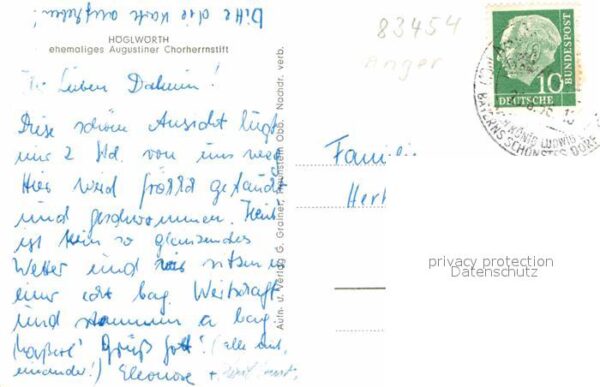 Bitte die Karte aufheben!
HÖGLWÖRTH
ehemaliges Augustiner Chorherrnstift
Ihr Lieben Daheim!
Diese schöne Ansicht liegt
nur 2 Std. von uns weg
Hier wird
und geschwommen. Heut
ist kein so glänzendes
Wetter und wir sitzen in
einer echt bay. Wirtschaft
und stemmen a bay.
Grüß Gott! (alle mit
einander!) Eleonore +
Aufn. u. Verlag G. Greiner, Traunstein Obb. Nachdr. verb.
83454
Anger
Famili
Her
DEUTSCHE
BUNDESPOST
10
KÖNIG LUDWIG
BAYERNS SCHÖNSTES DORF
privacy protection
Datenschutz